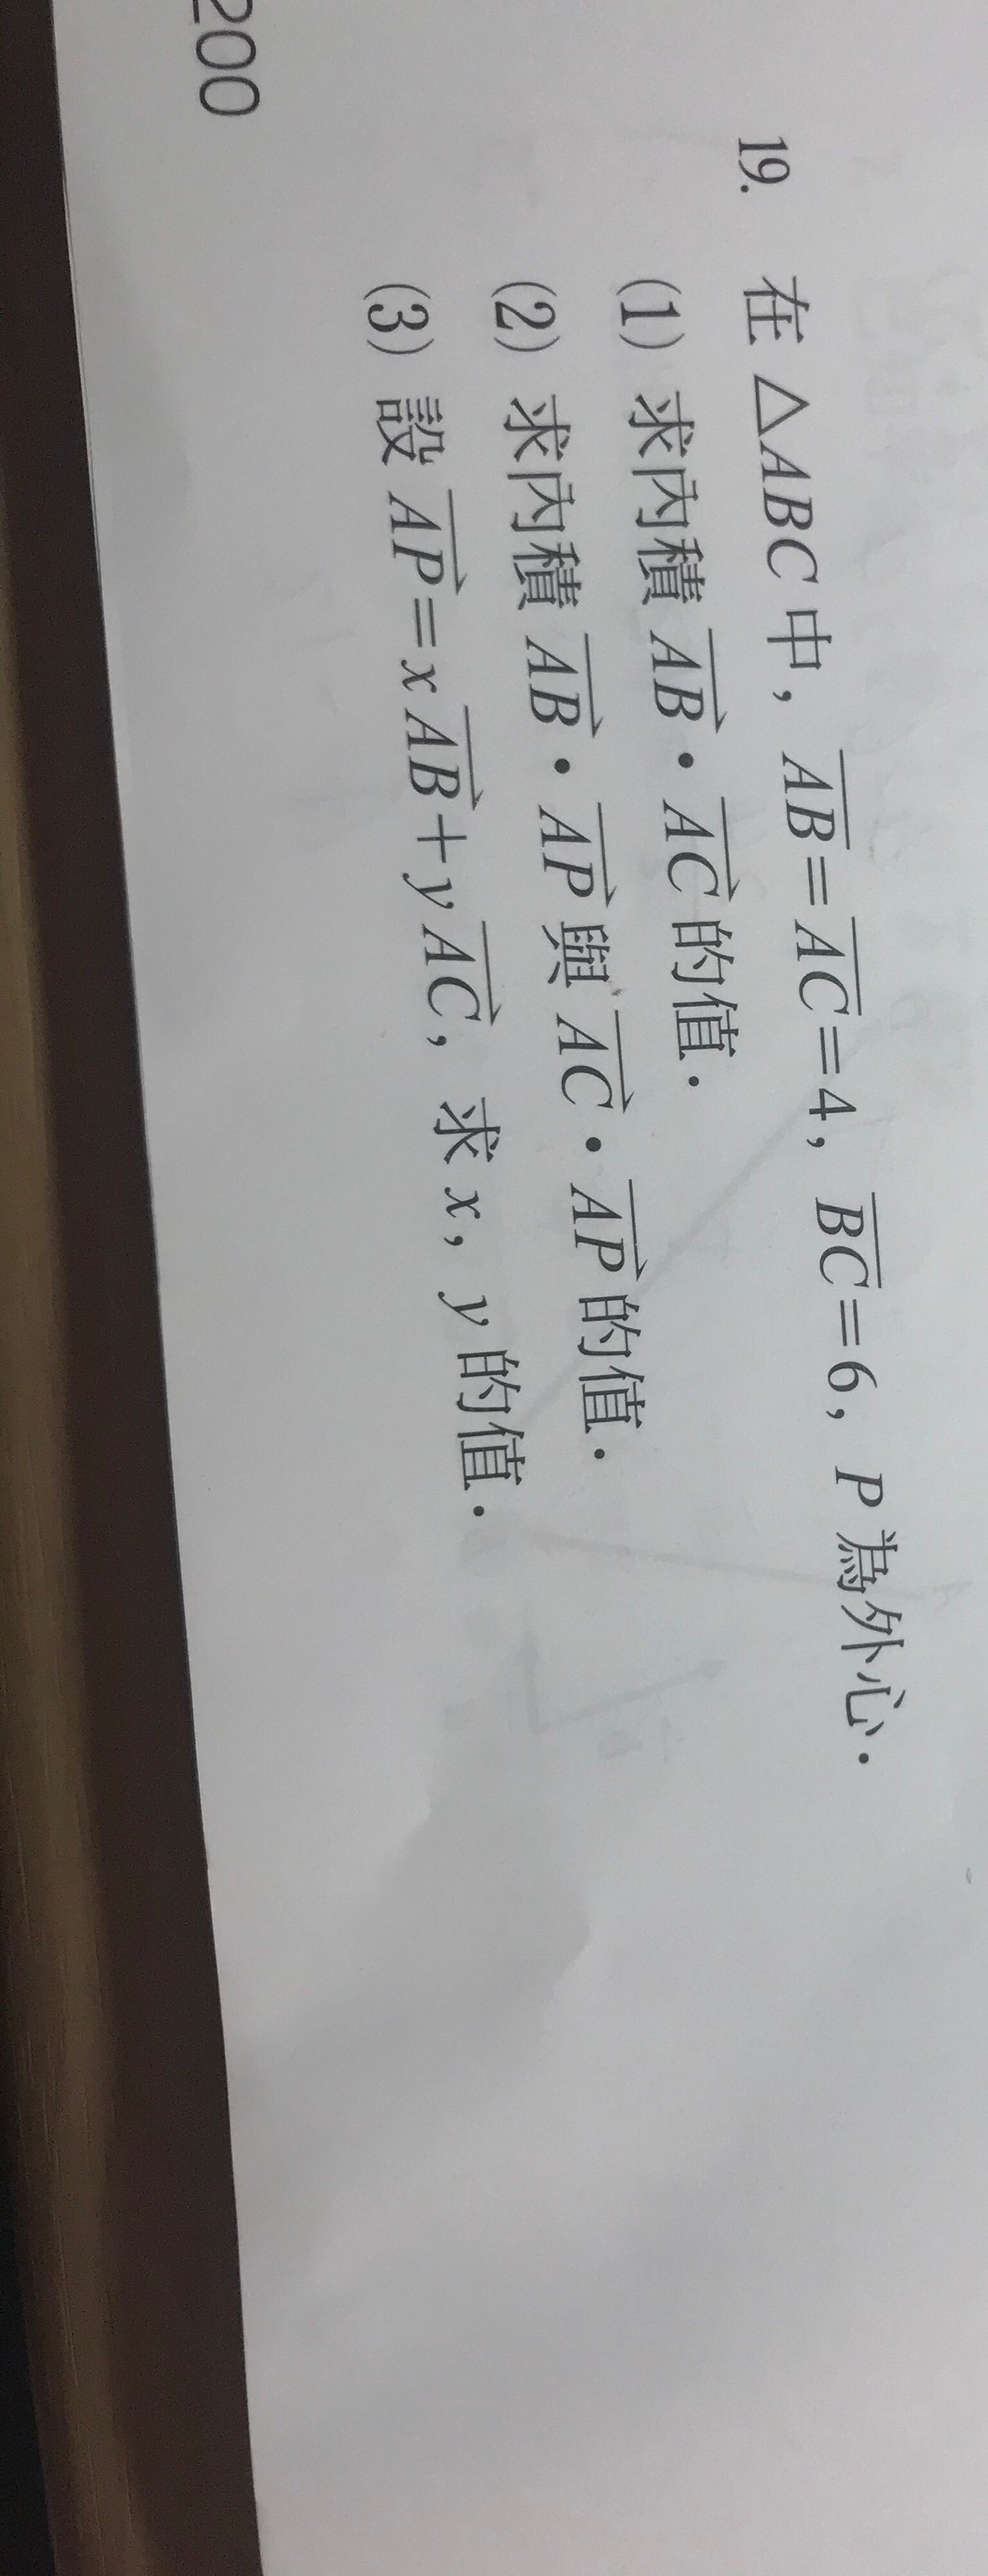 19. 在 △ABC 中，\overline{AB}=\overline{AC}=4，\overline{BC}=6，P 為外心．
(1) 求內積 \overrightarrow{AB}·\overrightarrow{AC} 的值．
(2) 求內積 \overrightarrow{AB}·\overrightarrow{AP} 與 \overrightarrow{AC}·\overrightarrow{AP} 的值．
(3) 設 \overrightarrow{AP}=x\overrightarrow{AB}+y\overrightarrow{AC}，求 x，y 的值．
200